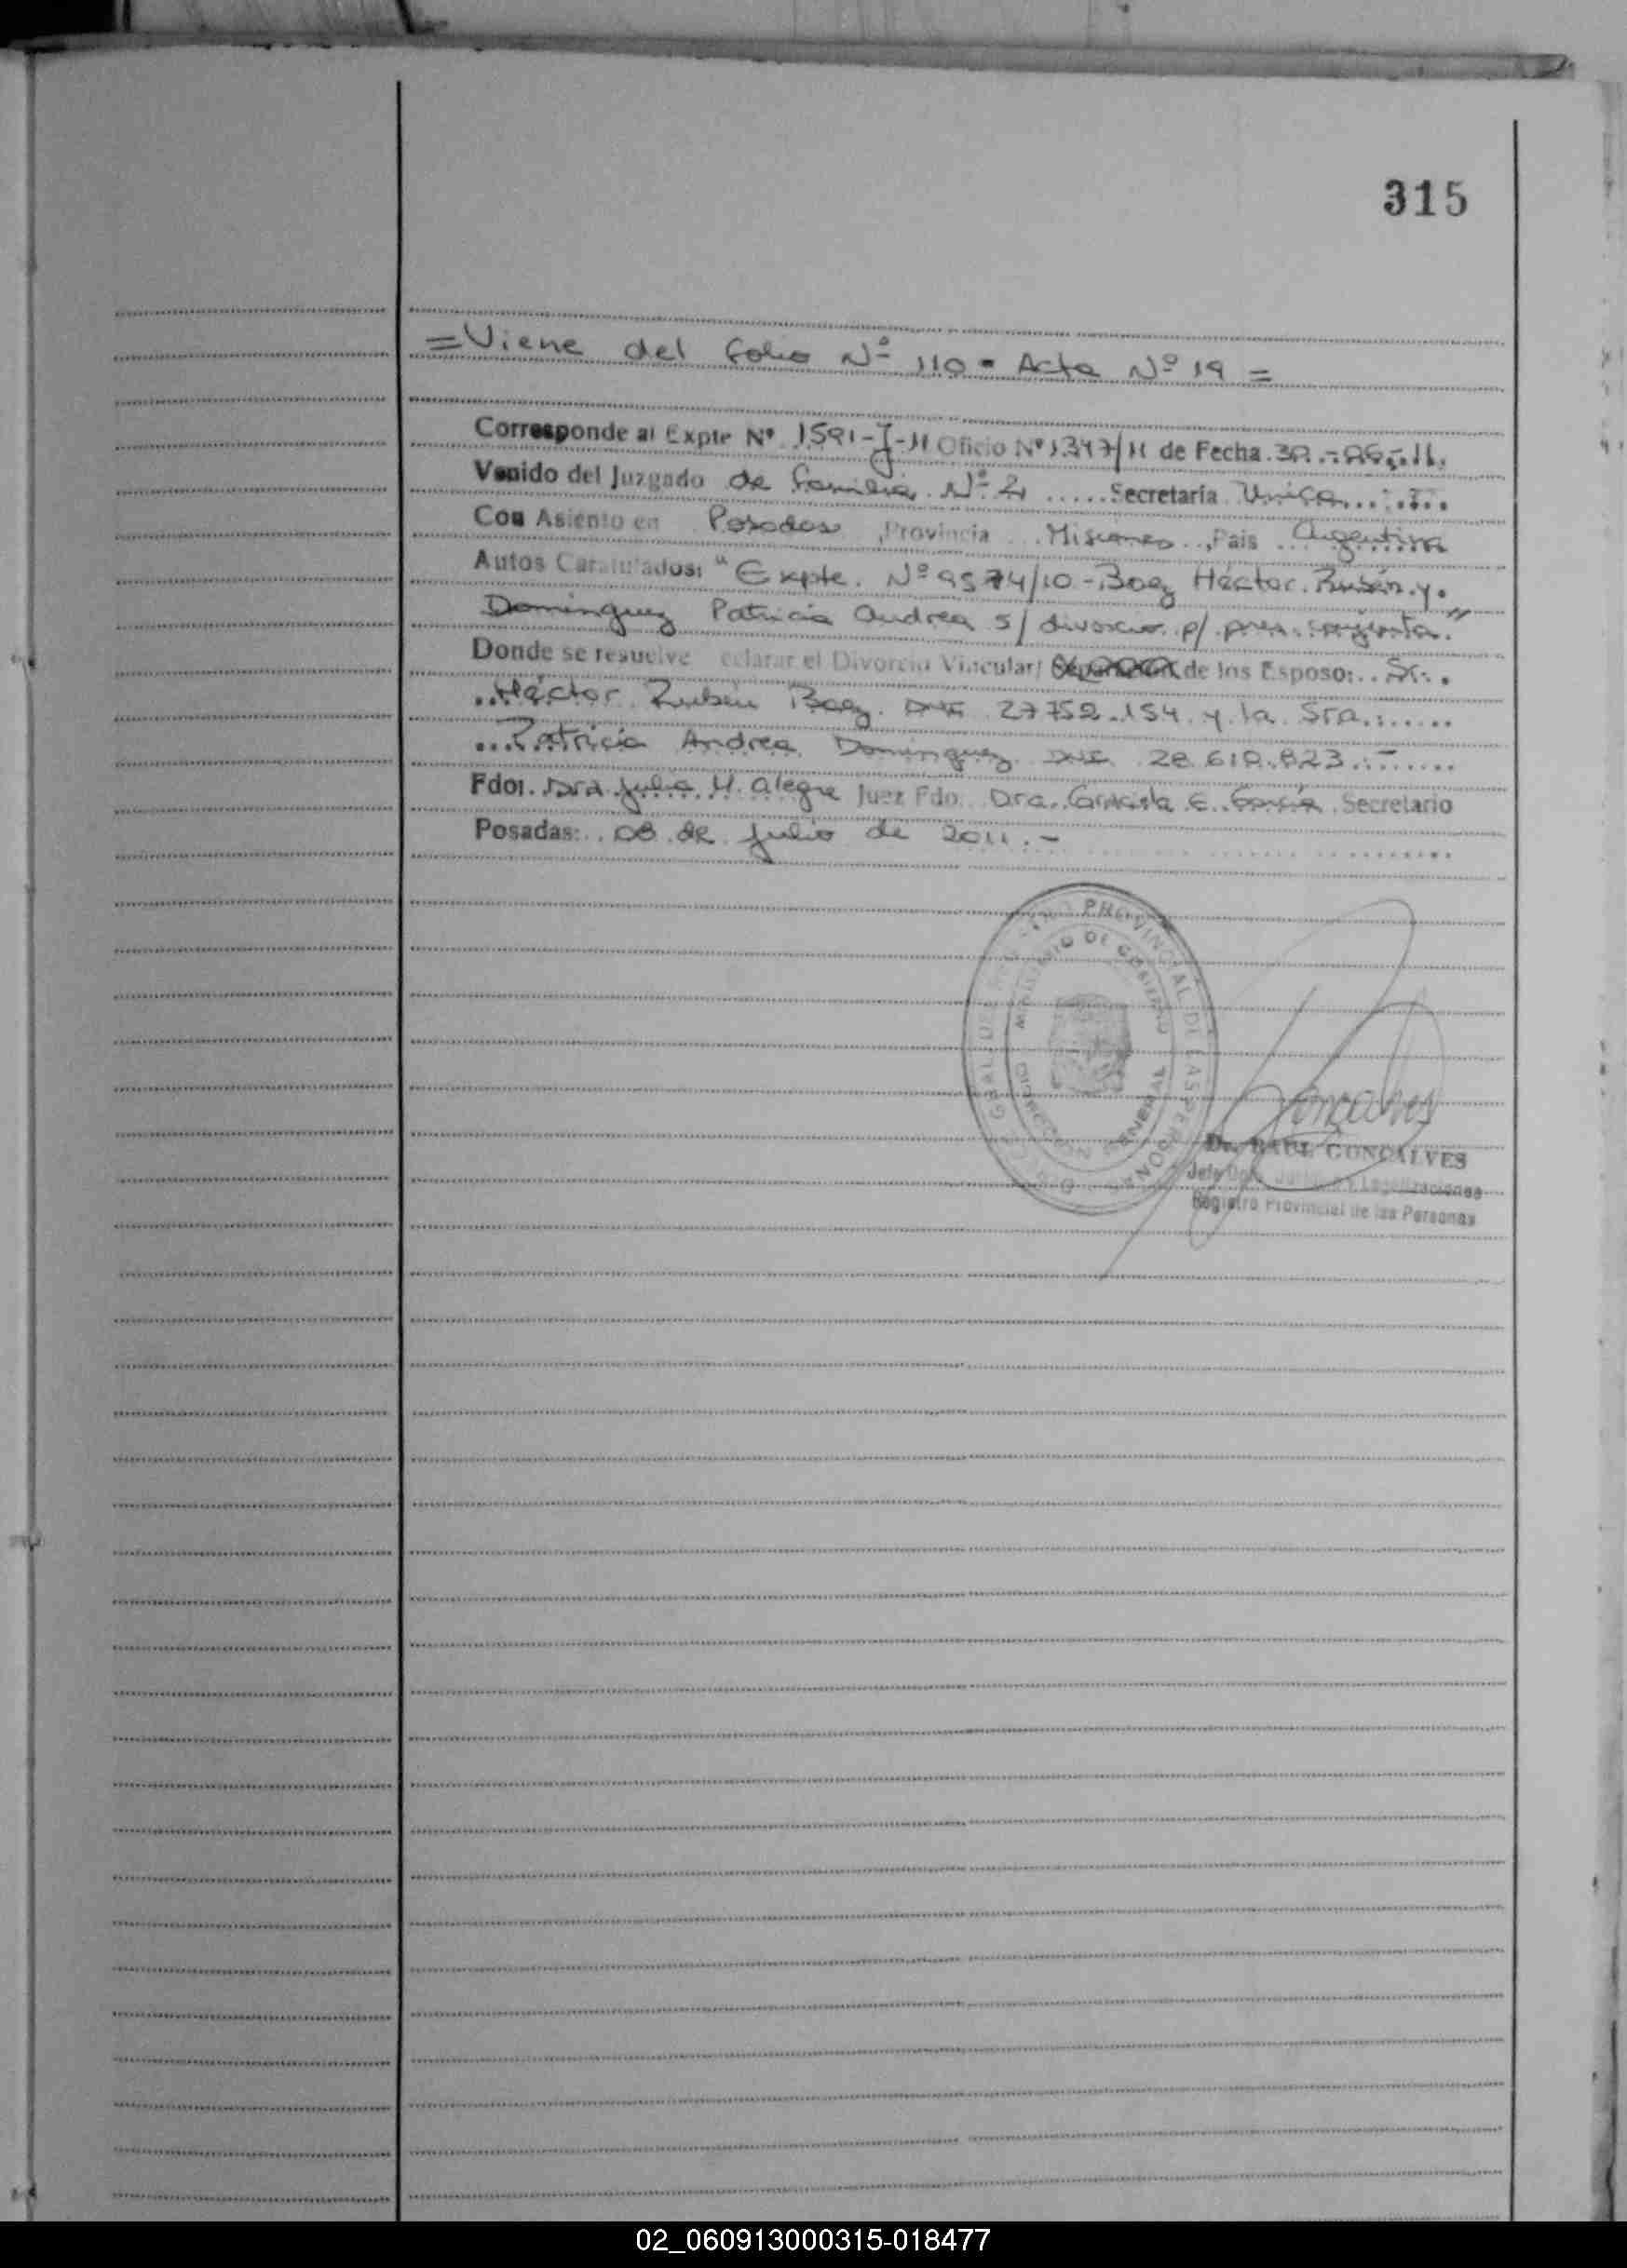 315
= Viene del folio Nº 110 - Acta Nº 19 =
Corresponde al Expte Nº 1591-J-11 Oficio Nº 1347/11 de Fecha 30.-06-.11.
Venido del Juzgado de familia Nº 2 ..... Secretaría Unica
Con Asiento en Posadas, Provincia Misiones, Pais Argentina
Autos Caratulados: "Expte. Nº 9574/10 - Baez Héctor Rubén y
Dominguez Patricia Andrea s/ divorcio p/ pres. conjunta."
Donde se resuelve eclarar el Divorcio Vincular/ de los Esposo: Sr.
Héctor Rubén Baez DNI 27752.154 y la Sra.
Patricia Andrea Dominguez DNI 28.610.823
Fdo: Dra Julia H. Alegre Juez Fdo. Dra. Graciela E. García Secretario
Posadas: 08 de Julio de 2011.-
PROVINCIAL DE LAS PERSONAS
MINISTERIO DE GOBIERNO
Goncalves
Dr. RAUL GONCALVES
Jefe Dpto. y Legalizaciones
Registro Provincial de las Personas
02_060913000315-018477